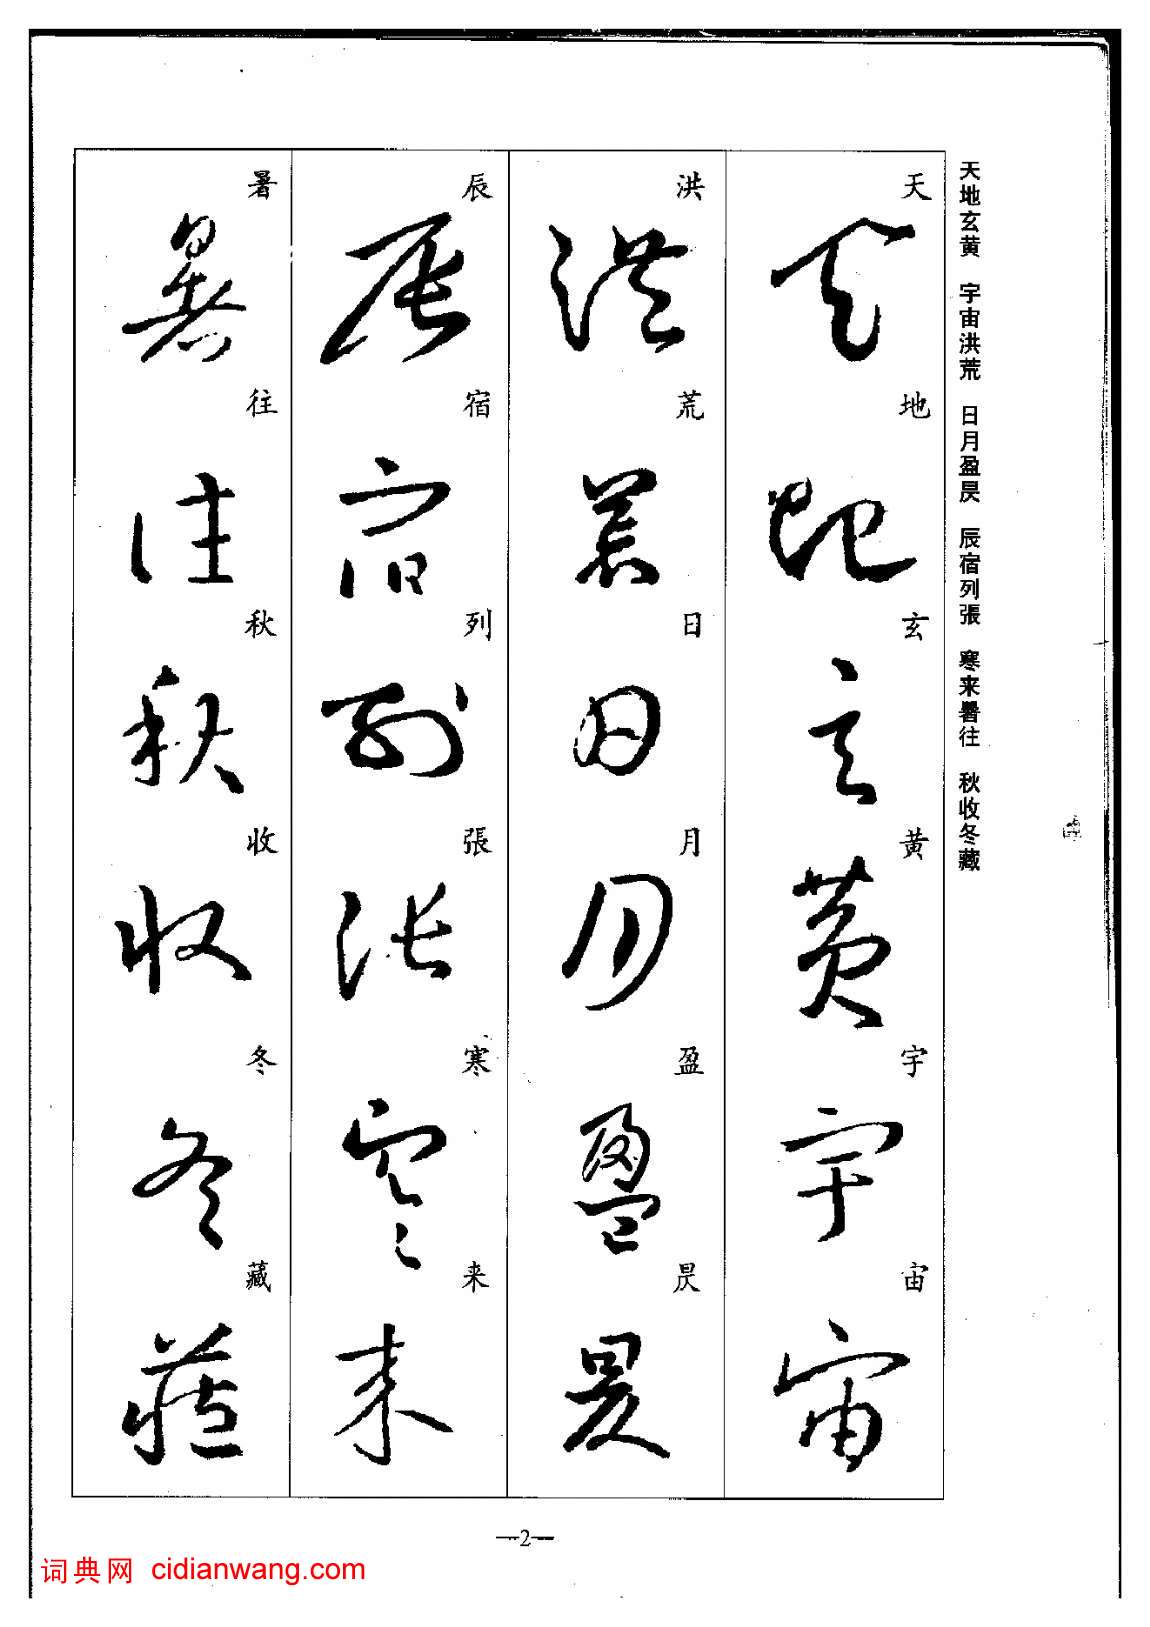 天地玄黄　宇宙洪荒　日月盈昃　辰宿列張　寒来暑往　秋收冬藏
天地玄黄宇宙
洪荒日月盈昃
辰宿列張寒来
暑往秋收冬藏
—2—
词典网 cidianwang.com